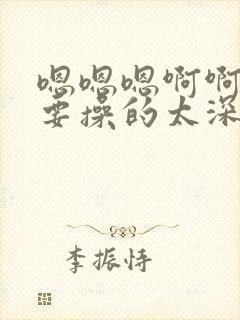 嗯嗯嗯啊啊
要操的太深
李振恃